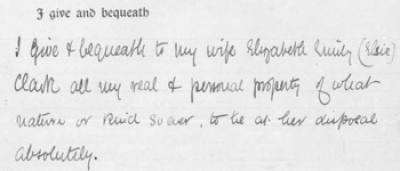 I give and bequeath
I Give & bequeath to my wife Elizabeth Emily (Elsie)
Clark all my real & personal property of what
nature or kind soever, to be at her disposal
absolutely.